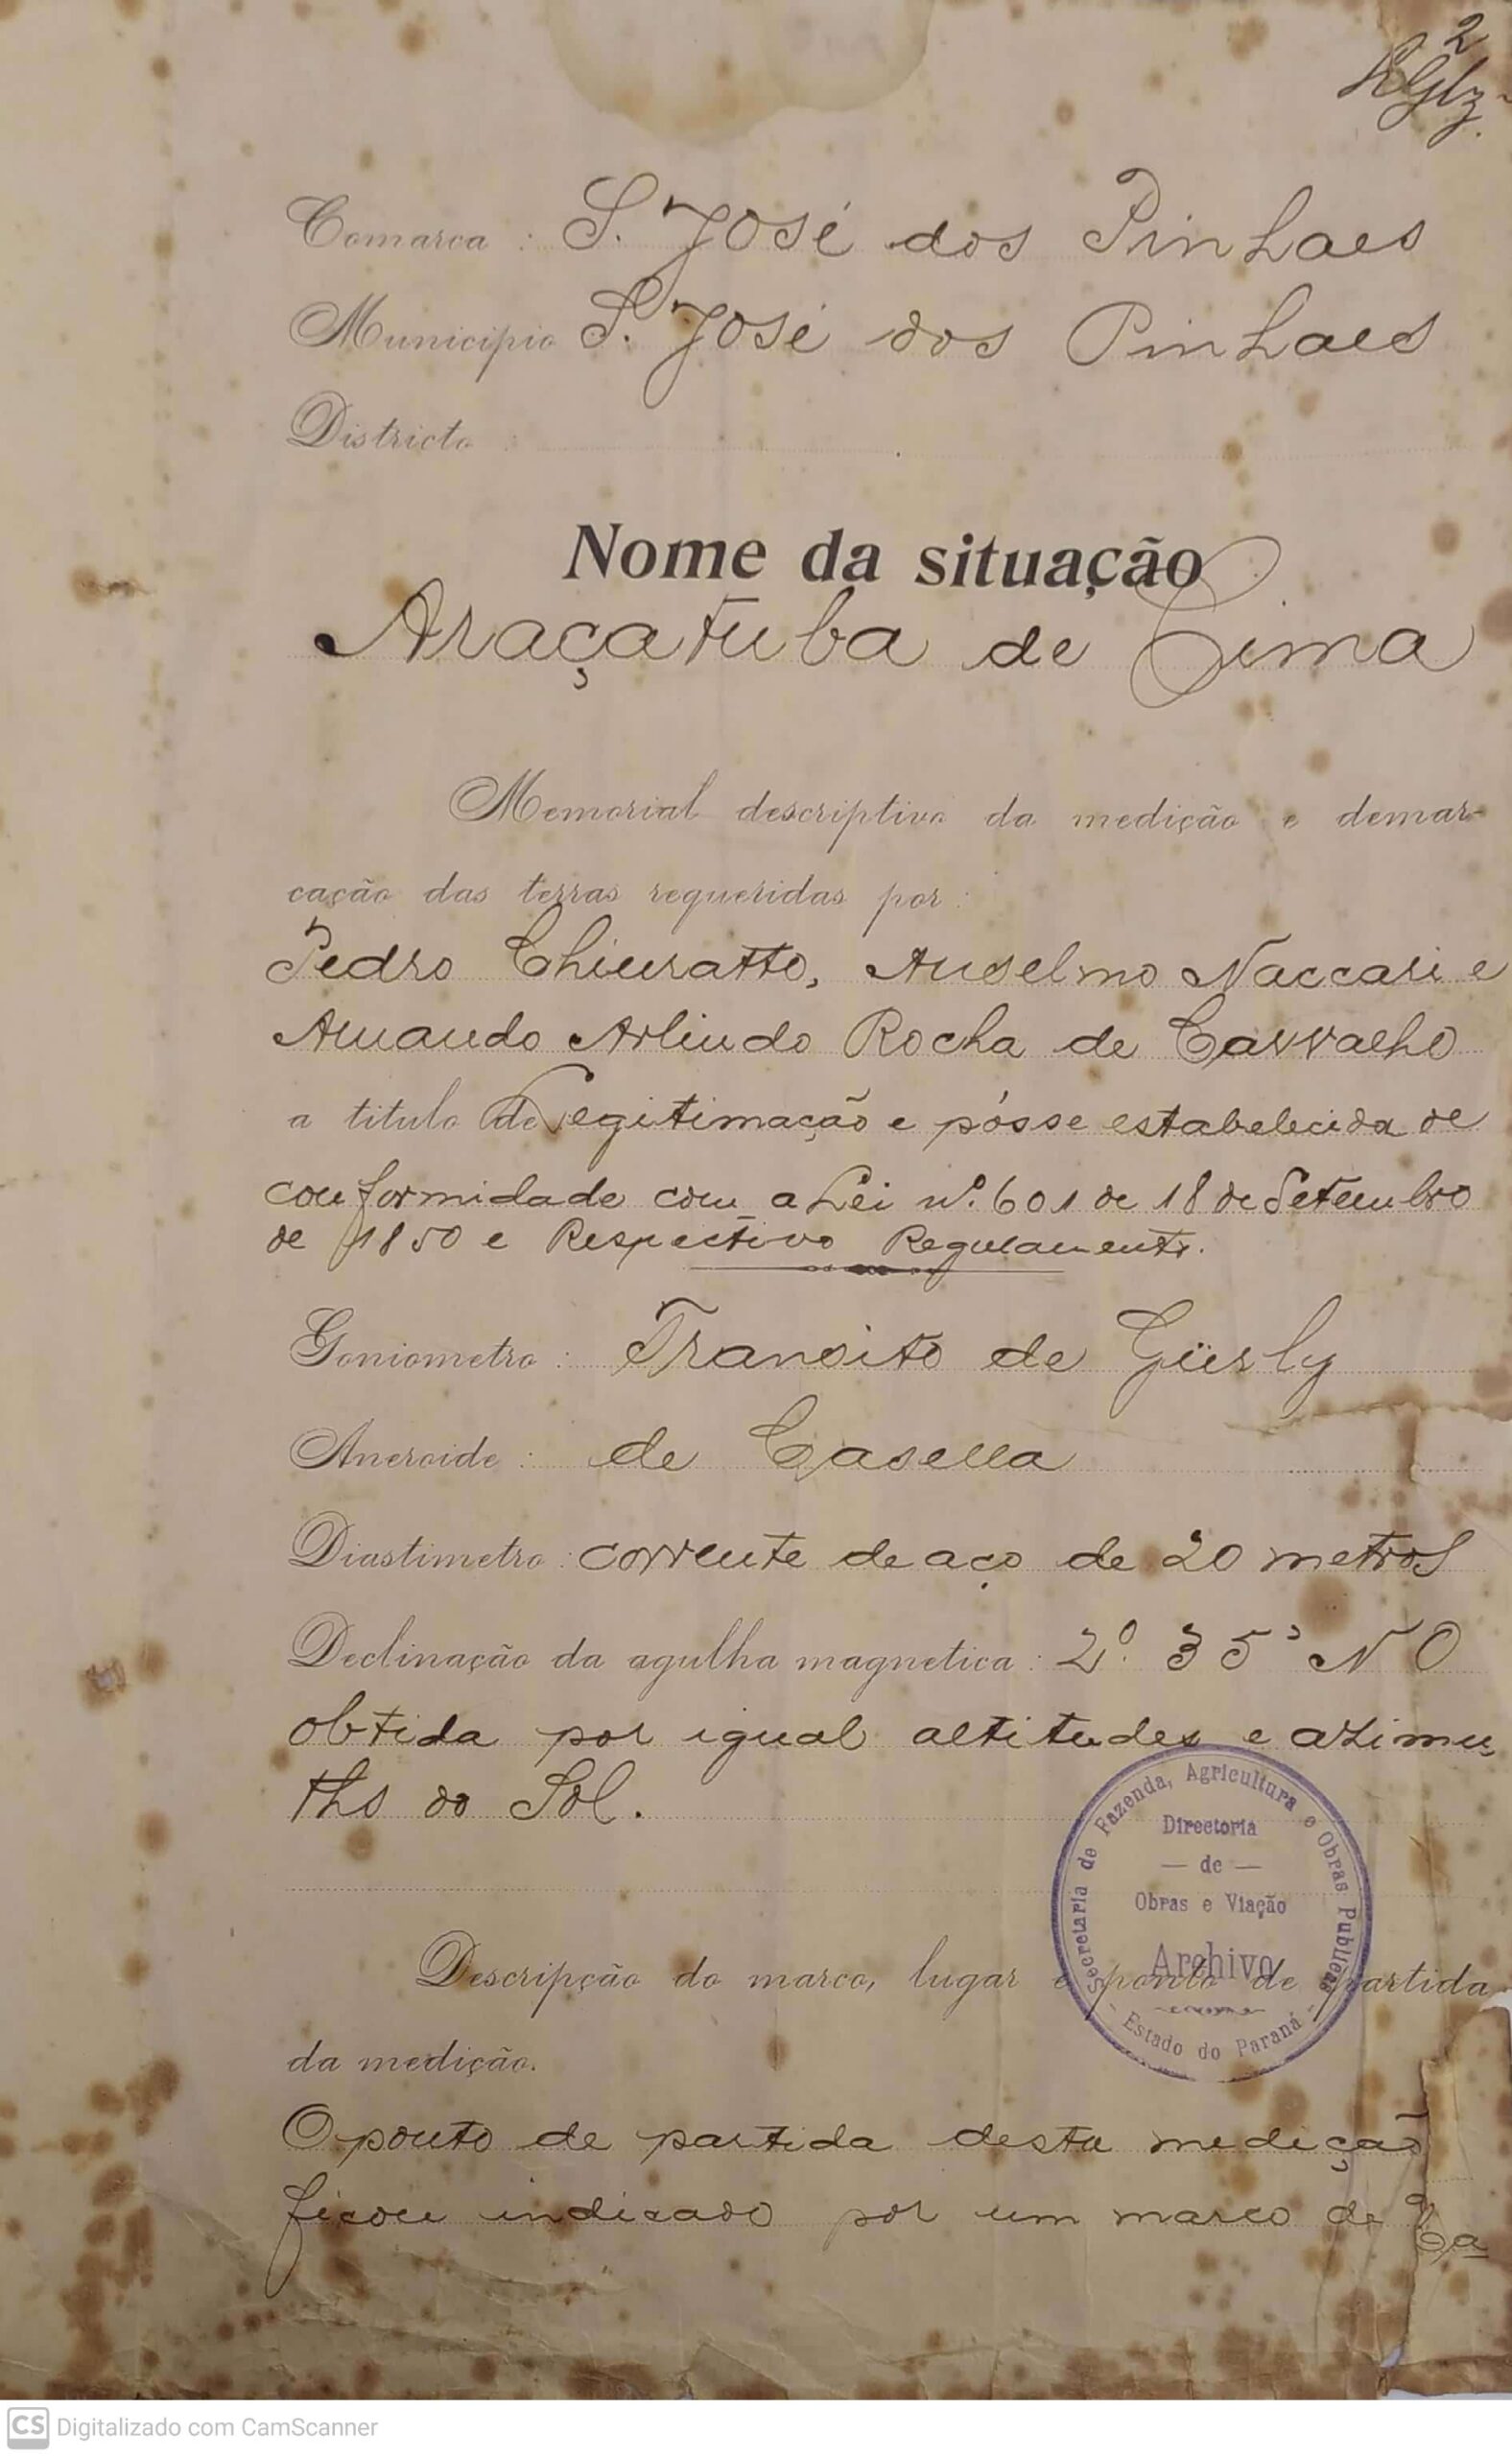 2
Comarca : S. José dos Pinhaes
Municipio S. José dos Pinhaes
Districto :
Nome da situação
Araçatuba de Cima
Memorial descriptivo da medição e demar-
cação das terras requeridas por :
Pedro Chiuratto, Anselmo Naccari e
Amando Arlindo Rocha de Carvalho
a titulo de Legitimação e pósse estabelecida de
conformidade com a Lei nº. 601 de 18 de Setembro
de 1850 e Respectivo Regulamento.
Goniometro : Transito de Gürly
Aneroide : de Casella
Diastimetro : corrente de aço de 20 metros
Declinação da agulha magnetica : 2º. 35' NO
obtida por igual altitudes e azimu-
ths do Sol.
Secretaria de Fazenda, Agricultura e Obras Publicas
Directoria
— de —
Obras e Viação
Archivo
- Estado do Paraná -
Descripção do marco, lugar e ponto de partida
da medição.
O ponto de partida desta medição
ficou indicado por um marco de Ca
CS Digitalizado com CamScanner